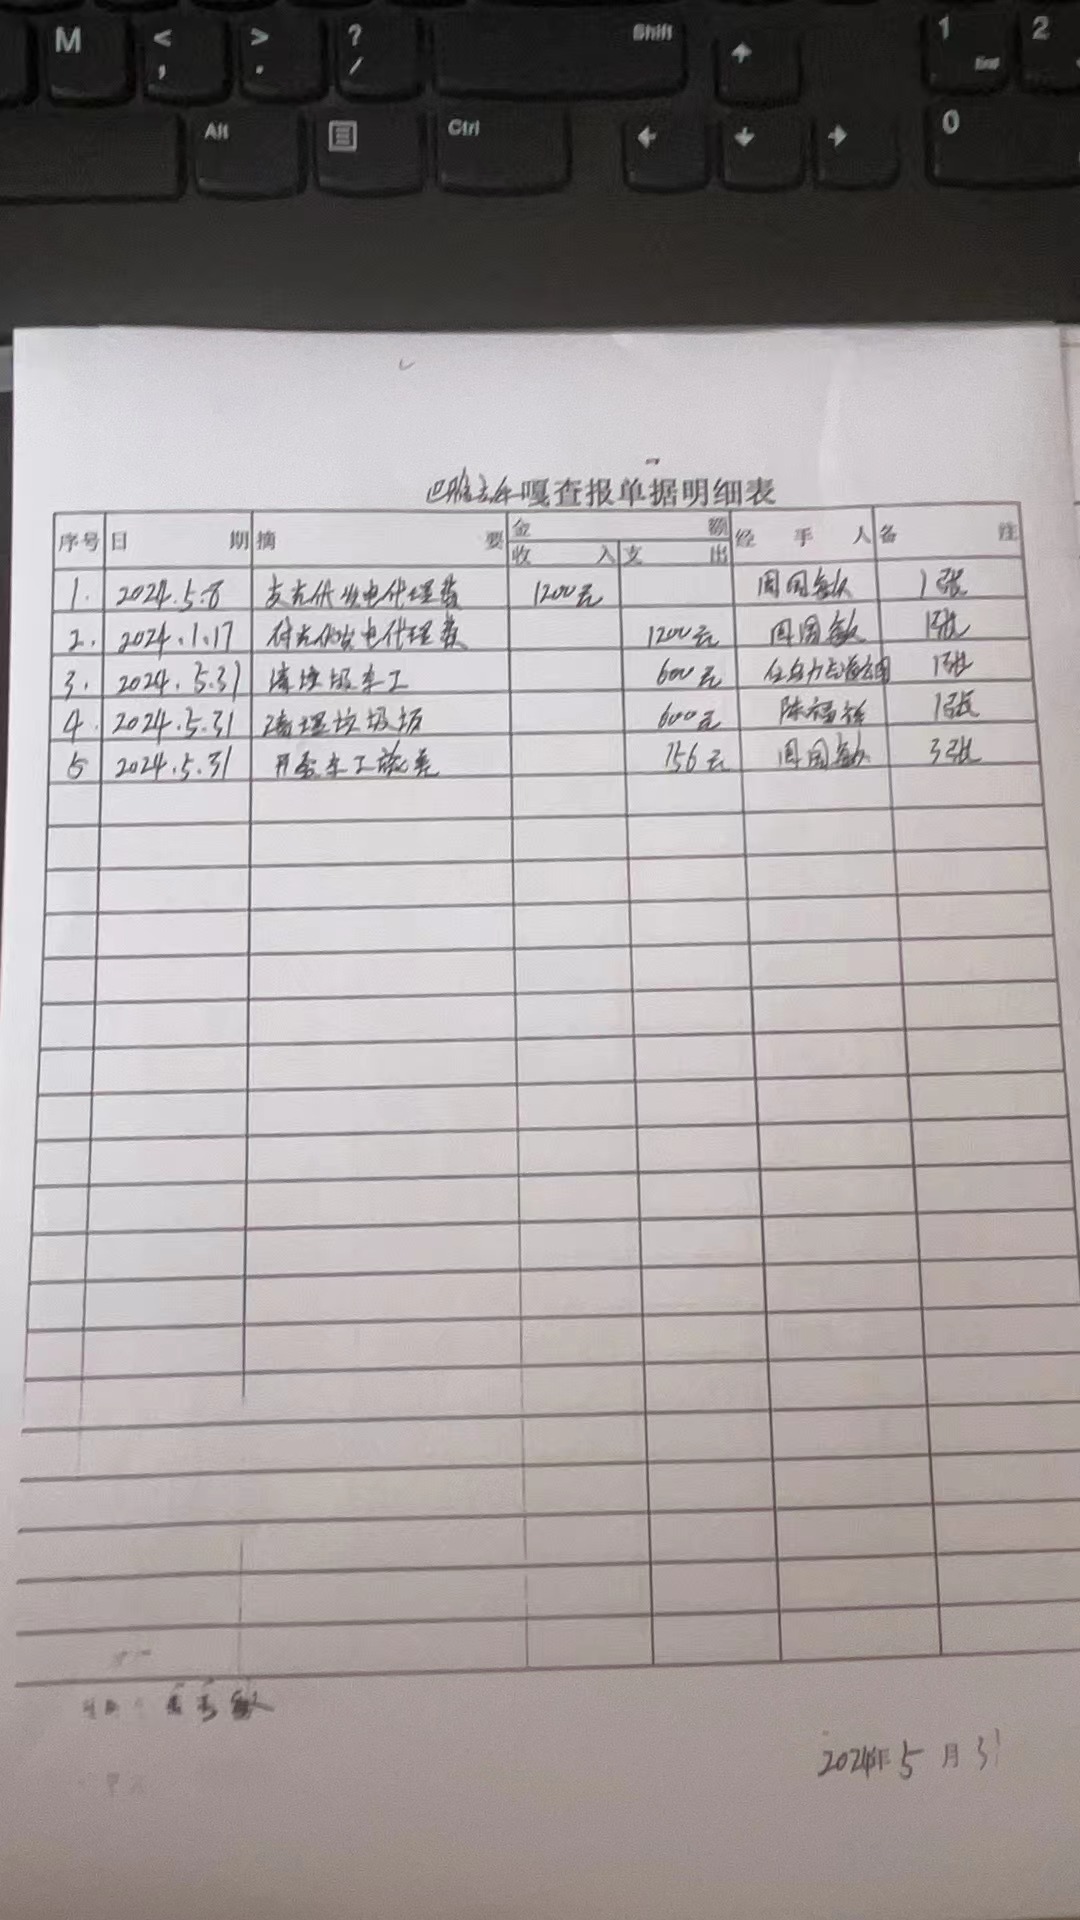 M < , > . ? / Shift ↑ 1 End 2
Alt Ctrl ← ↓ → 0
嘎查报单据明细表
序号 日期 摘要 金额 经手人 备注
收入 支出
1. 2024.5.8 支光伏发电代理费 1200元 周国敏 1张
2. 2024.1.17 付光伏发电代理费 1200元 周国敏 1张
3. 2024.5.31 清垃圾车工 600元 1张
4. 2024.5.31 清理垃圾场 600元 陈福 1张
5 2024.5.31 车工 756元 周国敏 3张
2024年5月31